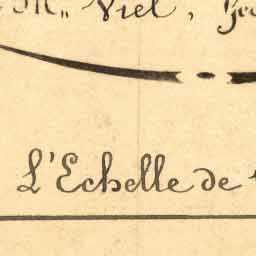 M,, Viel,
L'Echelle de